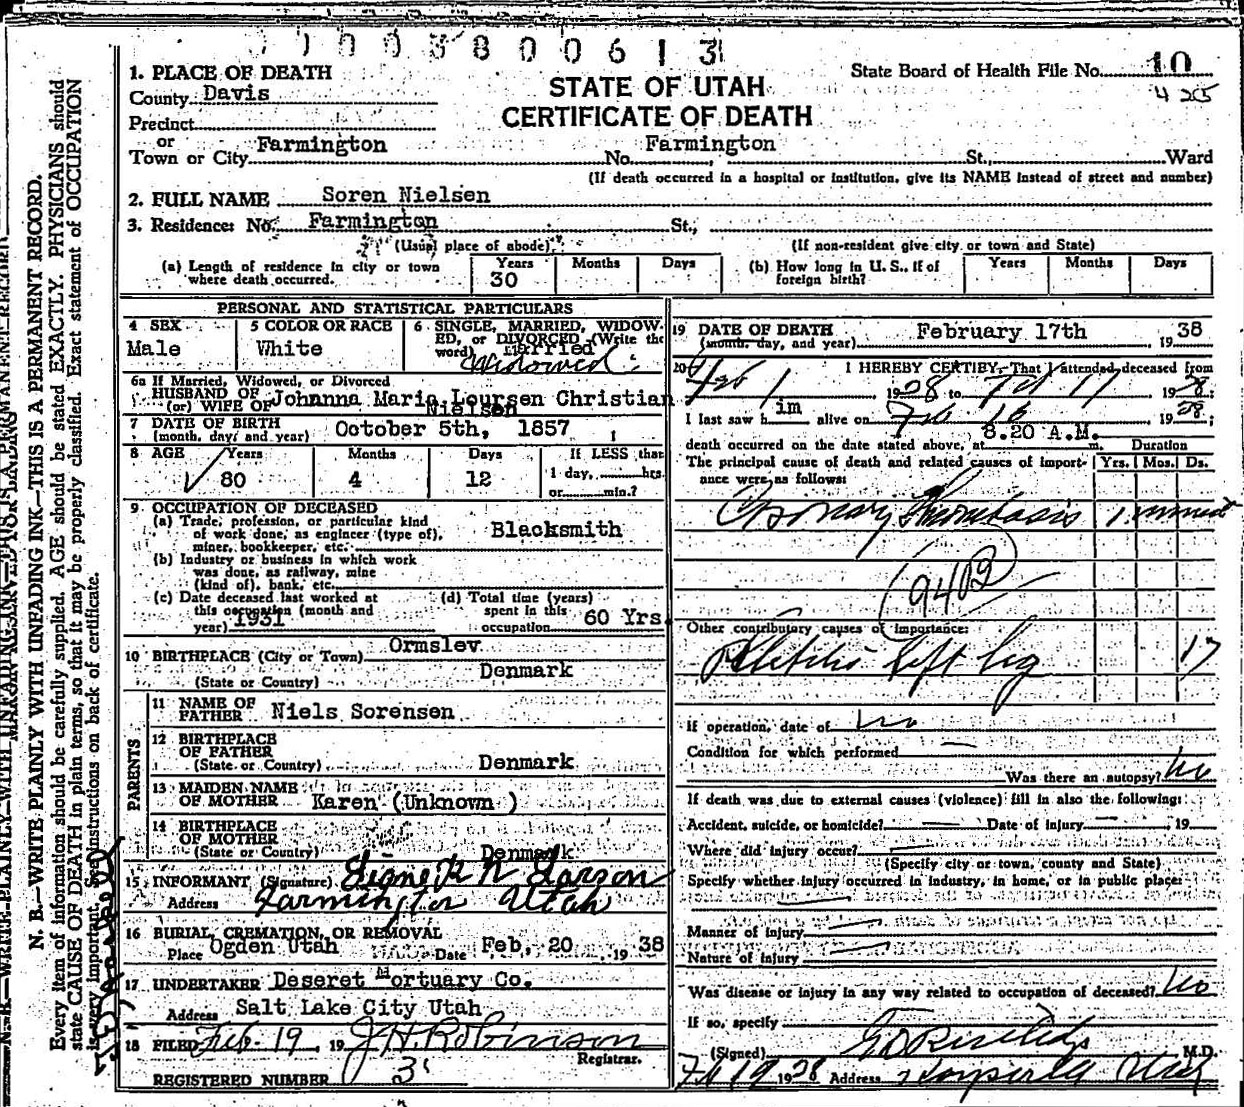 1003800613
1. PLACE OF DEATH
County Davis
Precinct
or
Town or City Farmington
STATE OF UTAH
CERTIFICATE OF DEATH
State Board of Health File No. 10
425
No. Farmington St., Ward
(If death occurred in a hospital or institution, give its NAME instead of street and number)
2. FULL NAME Soren Nielsen
3. Residence: No. Farmington St.,
(Usual place of abode)
(If non-resident give city or town and State)
(a) Length of residence in city or town where death occurred. Years 30 Months Days
(b) How long in U. S., if of foreign birth? Years Months Days
PERSONAL AND STATISTICAL PARTICULARS
4 SEX
Male
5 COLOR OR RACE
White
6 SINGLE, MARRIED, WIDOW-
ED, or DIVORCED (Write the
word) Married
Widowed
6a If Married, Widowed, or Divorced
HUSBAND OF Johanna Maria Loursen Christian
(or) WIFE OF Nielsen
7 DATE OF BIRTH
(month, day, and year) October 5th, 1857
8 AGE Years 80 Months 4 Days 12
If LESS than
1 day, hrs.
or min.?
9 OCCUPATION OF DECEASED
(a) Trade, profession, or particular kind
of work done, as engineer (type of),
miner, bookkeeper, etc. Blacksmith
(b) Industry or business in which work
was done, as railway, mine
(kind of), bank, etc.
(c) Date deceased last worked at
this occupation (month and
year) 1931
(d) Total time (years)
spent in this
occupation 60 Yrs.
10 BIRTHPLACE (City or Town) Ormslev
(State or Country) Denmark
PARENTS
11 NAME OF
FATHER Niels Sorensen
12 BIRTHPLACE
OF FATHER
(State or Country) Denmark
13 MAIDEN NAME
OF MOTHER Karen (Unknown )
14 BIRTHPLACE
OF MOTHER
(State or Country) Denmark
15 INFORMANT (Signature) Signe K N Larson
Address Farmington Utah
16 BURIAL, CREMATION, OR REMOVAL
Place Ogden Utah Date Feb, 20 19 38
17 UNDERTAKER Deseret Mortuary Co.
Address Salt Lake City Utah
18 FILED Feb. 19, 19 J H Robinson
Registrar.
REGISTERED NUMBER 3
19 DATE OF DEATH
(month, day, and year) February 17th 19 38
20 I HEREBY CERTIFY, That I attended deceased from
Feb 1 1938 to Feb 17 1938;
I last saw him alive on Feb 16 1938;
death occurred on the date stated above, at 8.20 A.M. m.
Duration
The principal cause of death and related causes of import-
ance were as follows:
Yrs. Mos. Ds.
Coronary Thrombosis 1 minute
94B
Other contributory causes of importance:
Phlebitis left leg 17
If operation, date of no
Condition for which performed —
Was there an autopsy? no
If death was due to external causes (violence) fill in also the following:
Accident, suicide, or homicide? — Date of injury — , 19
Where did injury occur? —
(Specify city or town, county and State)
Specify whether injury occurred in industry, in home, or in public place:
Manner of injury —
Nature of injury —
Was disease or injury in any way related to occupation of deceased? No
If so, specify
(Signed) M.D.
Feb 19 1938 Address Utah
N. B.—WRITE PLAINLY WITH UNFADING INK—THIS IS A PERMANENT RECORD.
Every item of information should be carefully supplied. AGE should be stated EXACTLY. PHYSICIANS should
state CAUSE OF DEATH in plain terms, so that it may be properly classified. Exact statement of OCCUPATION
is very important. See instructions on back of certificate.